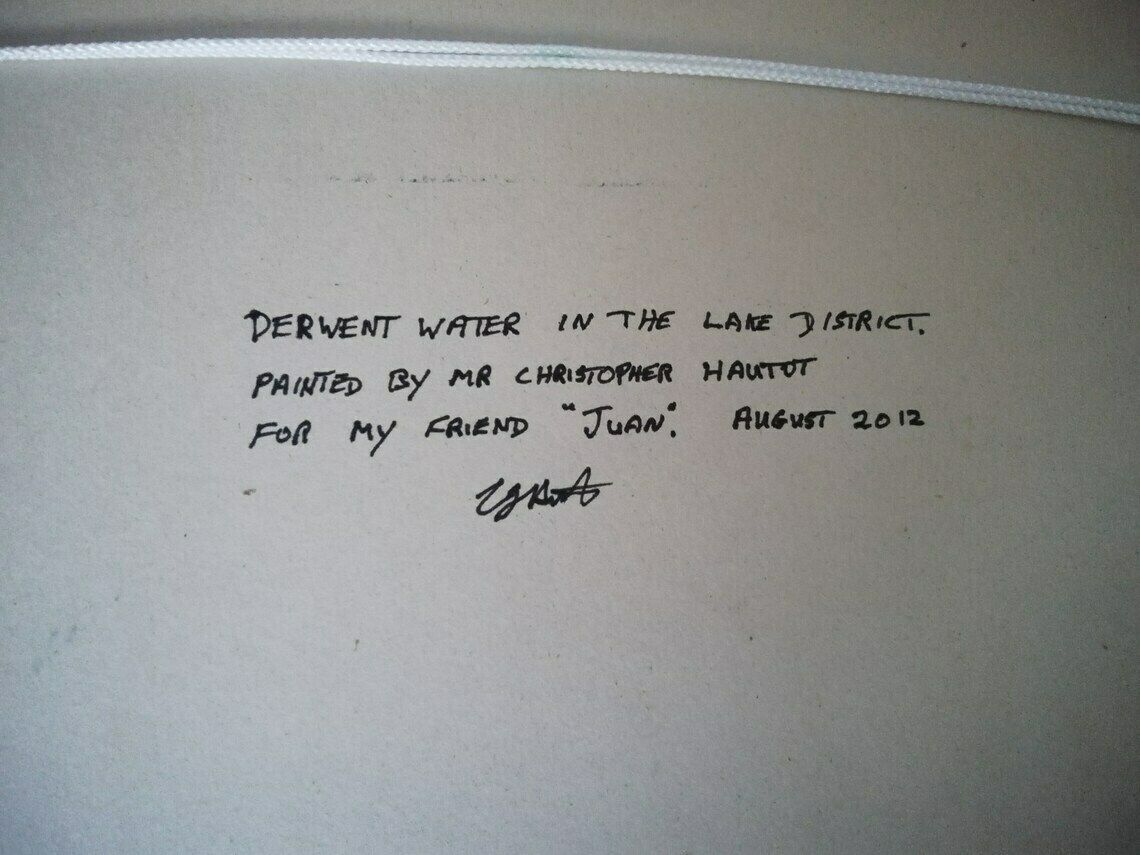 DERWENT WATER IN THE LAKE DISTRICT.
PAINTED BY MR CHRISTOPHER HAUTOT
FOR MY FRIEND "JUAN". AUGUST 2012